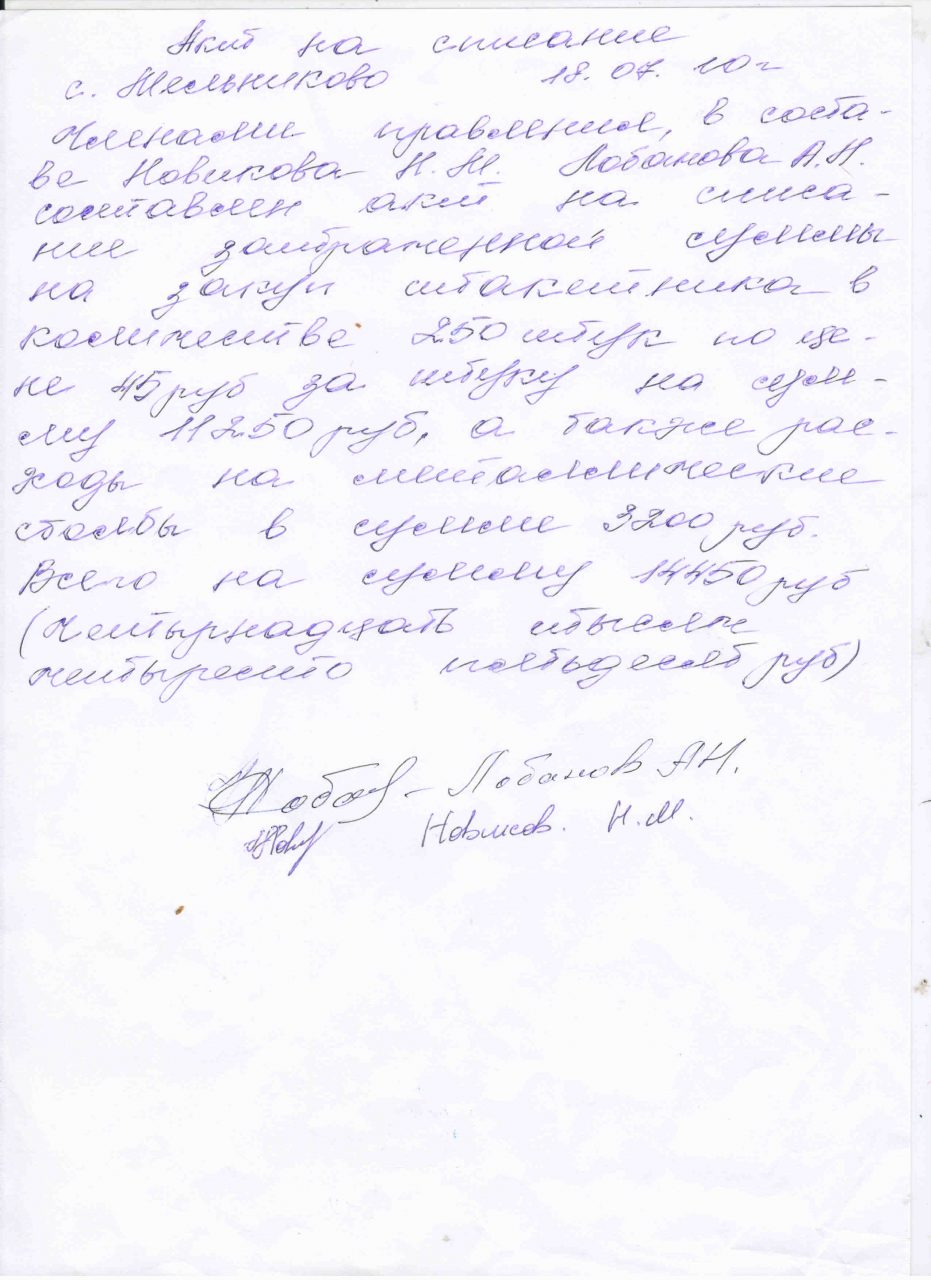 Акт на списание
с. Мельниково 18.07.10г
Членами правления, в соста-
ве Новикова Н.М. Лобанова А.Н.
составлен акт на списа-
ние затраченной суммы
на закуп штакетника в
количестве 250 штук по це-
не 45 руб за штуку на сум-
му 11250 руб, а также рас-
ходы на металлические
столбы в сумме 3200 руб.
Всего на сумму 14450 руб
(Четырнадцать тысяч
четыресто пятьдесят руб)
Лобанов А.Н.
Новиков. Н.М.